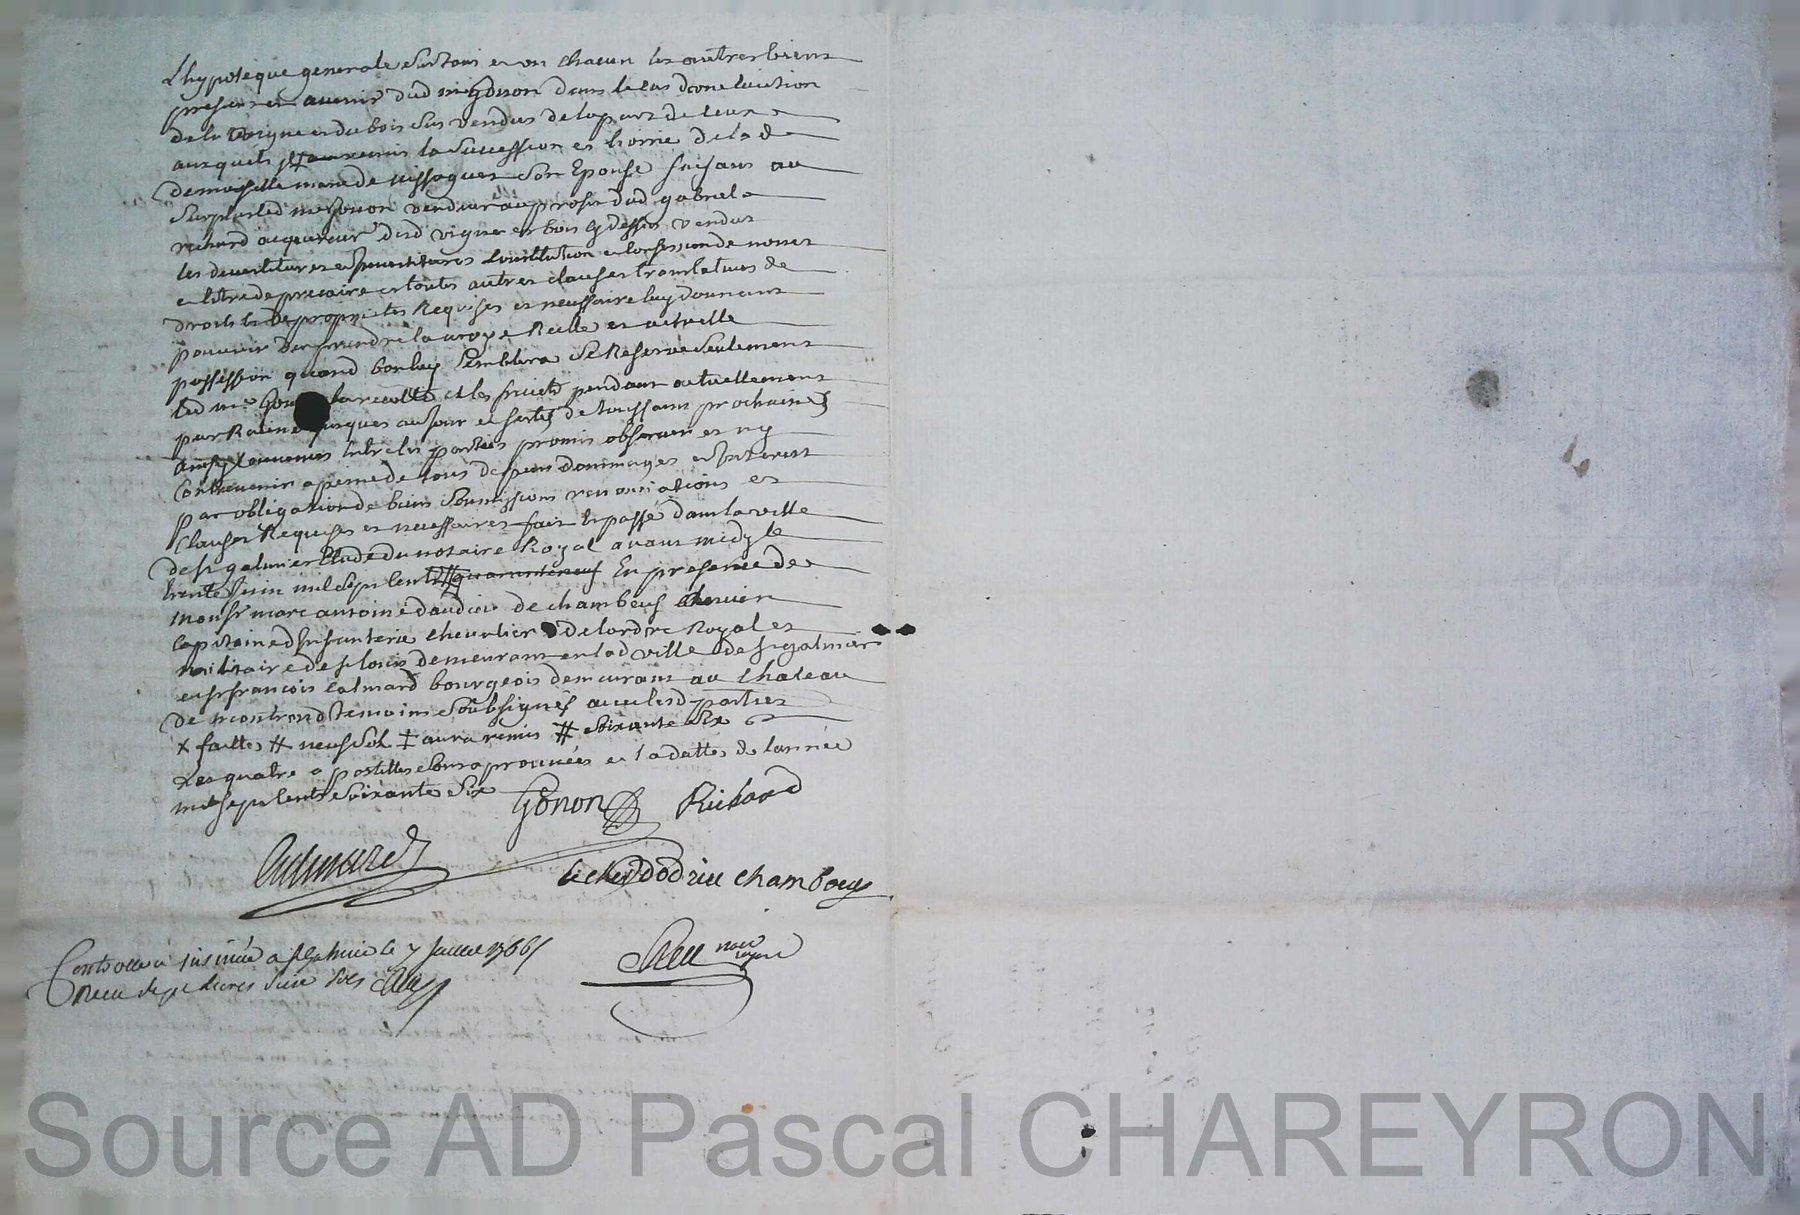 L'hypoteque generale sur tous et un chacun les autres biens
presens et avenir dud me Gonon dans le cas d'one eviction
de la vigne et du bois sus vendus de la part de ceux
auxquels il aura remis la succession et hoirie de la d
demoiselle marie de son Epouse faisant au
surplus led me Gonon vendeur au profit dud gabriel
richard acquereur dud vigne et bois cy dessus vendus
les devestitures et investitures constitution et confession de nom
et titre de precaire et toutes autres clauses translatives de
droits de proprietes Requises et necessaire luy donnant
pouvoir d'en prendre la vraye Reelle et actuelle
possession quand bon luy semblera se Reserve seulement
led me la recolte et les fruits pendant actuellement
par Racine jusques au jour et feste de toussaint prochaine
ainsy convenus entre les parties promis observer et ny
Contrevenir a peine de tous depens dommages et interest
par obligation de biens soumissions renonciations et
Clauses Requises et necessaires fait et passé dans la ville
de st galmier Etude du notaire Royal avant midy le
trente juin mil sept cent quarante neuf En presence de
Monsr marc antoine daudieu de chambeuf
Capitaine d'Infanterie chevalier de l'ordre Royal et
militaire de st louis demeurant en lad ville de st galmier
et sr francois calmard bourgeois demeurant au chateau
de montrond temoins soubsignés avec lesd parties
x faittes # neuf sol ‡ aura remis # soixante six
Les quatre apostilles cy approuvées et la datte de lannée
mil sept cent soixante six
Gonon Richard
Calmard
le cher Dodieu Chambeuf
Controllé et insinué a st Galmier le 7 Juillet 1766
Receu sept livres seize sols
nore royal
Source AD Pascal CHAREYRON